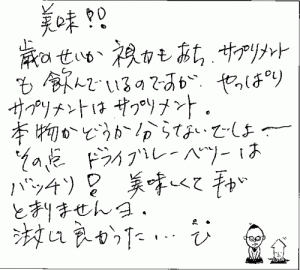 美味!!
歳のせいか 視力もおち、サプリメント
も 飲んでいるのですが、やっぱり
サプリメントはサプリメント。
本物かどうか分らないでしょー
その点 ドライブルーベリーは
バッチリ! 美味しくて手が
とまりませんヨ。
注文して良かった…